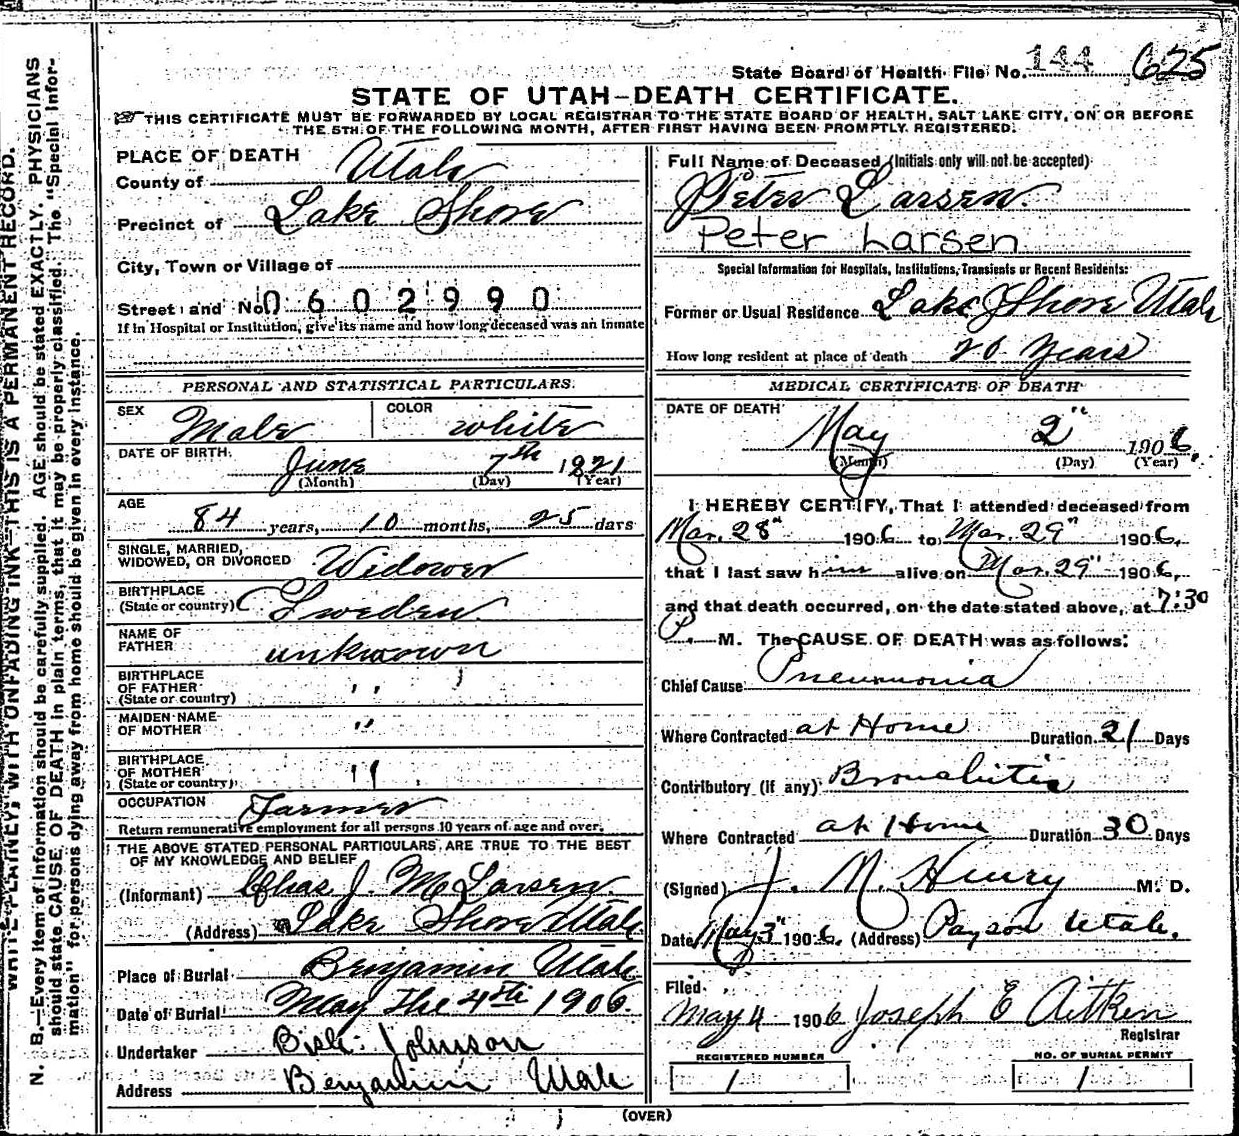 State Board of Health File No. 144 625
STATE OF UTAH-DEATH CERTIFICATE.
THIS CERTIFICATE MUST BE FORWARDED BY LOCAL REGISTRAR TO THE STATE BOARD OF HEALTH, SALT LAKE CITY, ON OR BEFORE
THE 5TH OF THE FOLLOWING MONTH, AFTER FIRST HAVING BEEN PROMPTLY REGISTERED.
PLACE OF DEATH
County of Utah
Precinct of Lake Shore
City, Town or Village of
Street and No. 0602990
If in Hospital or Institution, give its name and how long deceased was an Inmate
PERSONAL AND STATISTICAL PARTICULARS.
SEX Male COLOR white
DATE OF BIRTH. June 7th 1821
(Month) (Day) (Year)
AGE
84 years, 10 months, 25 days
SINGLE, MARRIED,
WIDOWED, OR DIVORCED Widower
BIRTHPLACE
(State or country) Sweden
NAME OF
FATHER unknown
BIRTHPLACE
OF FATHER " 
(State or country)
MAIDEN NAME
OF MOTHER "
BIRTHPLACE
OF MOTHER "
(State or country)
OCCUPATION Farmer
Return remunerative employment for all persons 10 years of age and over.
THE ABOVE STATED PERSONAL PARTICULARS ARE TRUE TO THE BEST
OF MY KNOWLEDGE AND BELIEF
(Informant) Chas J. M. Larsen
(Address) Lake Shore Utah
Place of Burial Benjamin Utah
Date of Burial May the 4th 1906.
Undertaker Bish. Johnson
Address Benjamin Utah
Full Name of Deceased (Initials only will not be accepted)
Peter Larsen.
Peter Larsen
Special Information for Hospitals, Institutions, Transients or Recent Residents:
Former or Usual Residence Lake Shore Utah
How long resident at place of death 20 Years
MEDICAL CERTIFICATE OF DEATH
DATE OF DEATH
May 2" 1906.
(Month) (Day) (Year)
I HEREBY CERTIFY, That I attended deceased from
Mar. 28" 1906 to Mar. 29" 1906,
that I last saw him alive on Mar. 29" 1906,
and that death occurred, on the date stated above, at 7:30
P. M. The CAUSE OF DEATH was as follows:
Chief Cause Pneumonia
Where Contracted at Home Duration 21 Days
Contributory (if any) Bronchitis
Where Contracted at Home Duration 30 Days
(Signed) J. M. Henry M. D.
Date May 3" 1906. (Address) Payson Utah.
Filed
May 4 1906 Joseph E Aitken
Registrar
REGISTERED NUMBER NO. OF BURIAL PERMIT
1 1
(OVER)
WRITE PLAINLY, WITH UNFADING INK—THIS IS A PERMANENT RECORD.
N. B.—Every item of information should be carefully supplied. AGE should be stated EXACTLY. PHYSICIANS
should state CAUSE OF DEATH in plain terms, that it may be properly classified. The "Special Infor-
mation" for persons dying away from home should be given in every instance.